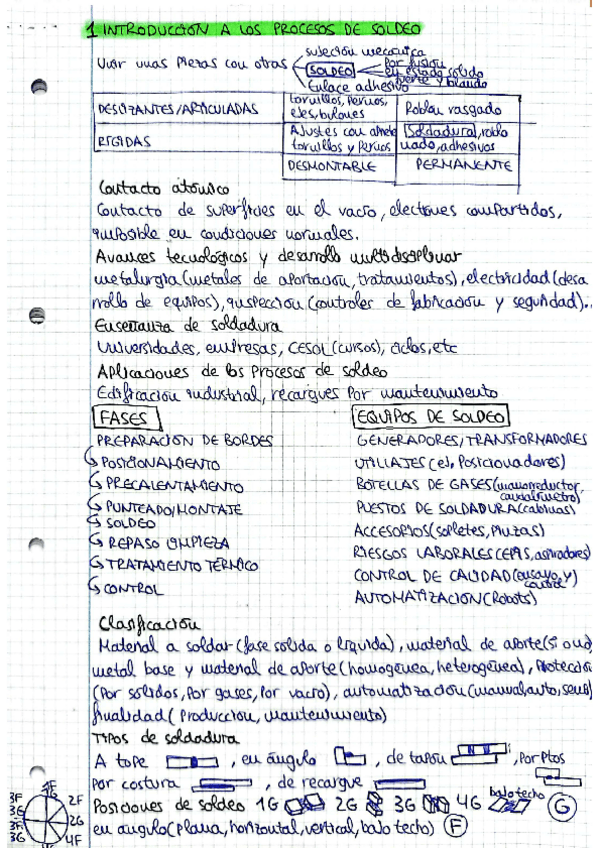 1 INTRODUCCIÓN A LOS PROCESOS DE SOLDEO
Unir unas piezas con otras
sujeción mecánica
SOLDEO
Por fusión
en estado sólido
fuerte y blando
Enlace adhesivo
DESLIZANTES/ARTICULADAS
tornillos, pernos,
ejes, bulones
Roblon rasgado
RÍGIDAS
Ajustes con apriete
tornillos y pernos
Soldadura, roblo
nado, adhesivos
DESMONTABLE
PERMANENTE
Contacto atómico
Contacto de superficies en el vacío, electrones compartidos,
imposible en condiciones normales.
Avances tecnológicos y desarrollo multidisciplinar
metalurgia (metales de aportación, tratamientos), electricidad (desa
rrollo de equipos), inspección (controles de fabricación y seguridad)...
Enseñanza de soldadura
Universidades, empresas, CESOL (cursos), ciclos, etc
Aplicaciones de los procesos de soldeo
Edificación industrial, recargues por mantenimiento
FASES
PREPARACIÓN DE BORDES
POSICIONAMIENTO
PRECALENTAMIENTO
PUNTEADO/MONTAJE
SOLDEO
REPASO LIMPIEZA
TRATAMIENTO TÉRMICO
CONTROL
EQUIPOS DE SOLDEO
GENERADORES/TRANSFORMADORES
UTILLAJES (ej. Posicionadores)
BOTELLAS DE GASES (manoreductor,
caudalímetro)
PUESTOS DE SOLDADURA (cabinas)
ACCESORIOS (sopletes, pinzas)
RIESGOS LABORALES (EPIS, aspiradores)
CONTROL DE CALIDAD (ensayo y
control)
AUTOMATIZACIÓN (Robots)
Clasificación
Material a soldar (fase sólida o líquida), material de aporte (si o no)
metal base y material de aporte (homogénea, heterogénea), Protección
(Por sólidos, Por gases, Por vacío), automatización (manual, auto, semi)
finalidad (Producción, mantenimiento)
Tipos de soldadura
A tope , en ángulo , de tapón , por ptos
por costura , de recargue
Posiciones de soldeo 1G 2G 3G 4G bajo techo G
en ángulo (plana, horizontal, vertical, bajo techo) F
1F
3F
2F
3G
2G
3F
3G
4F